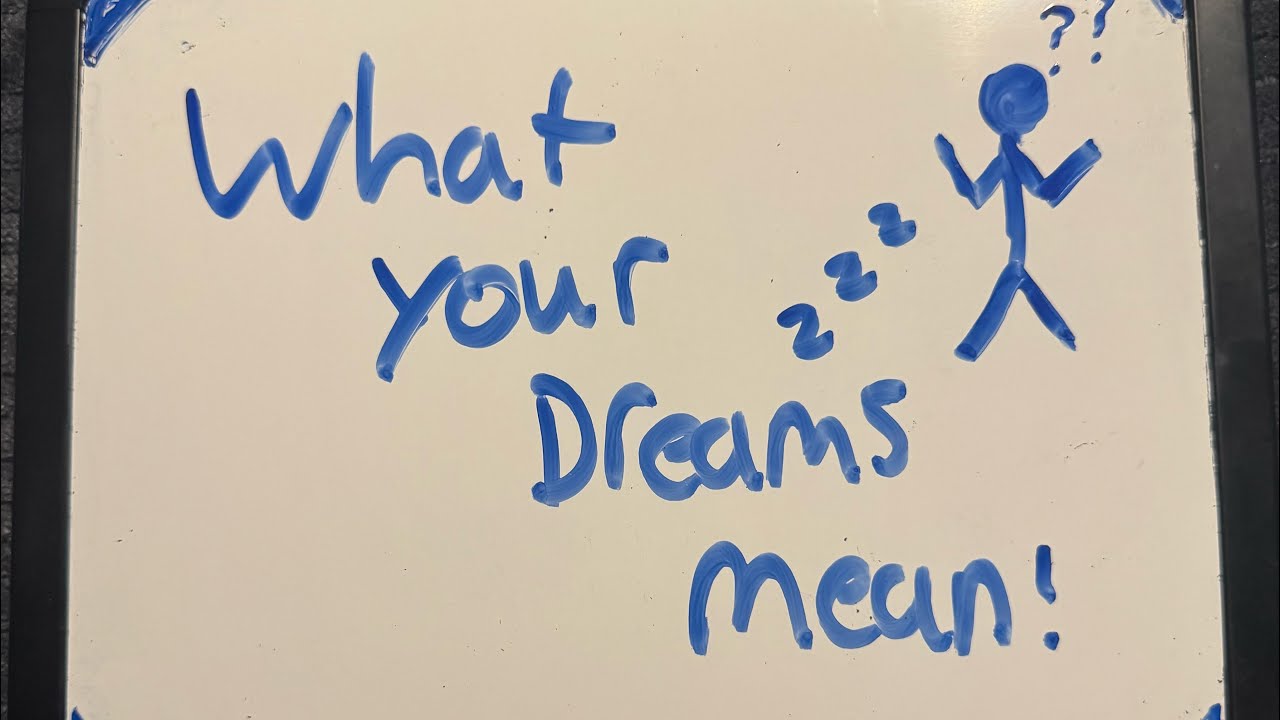 ??
What
your
zzz
Dreams
mean!